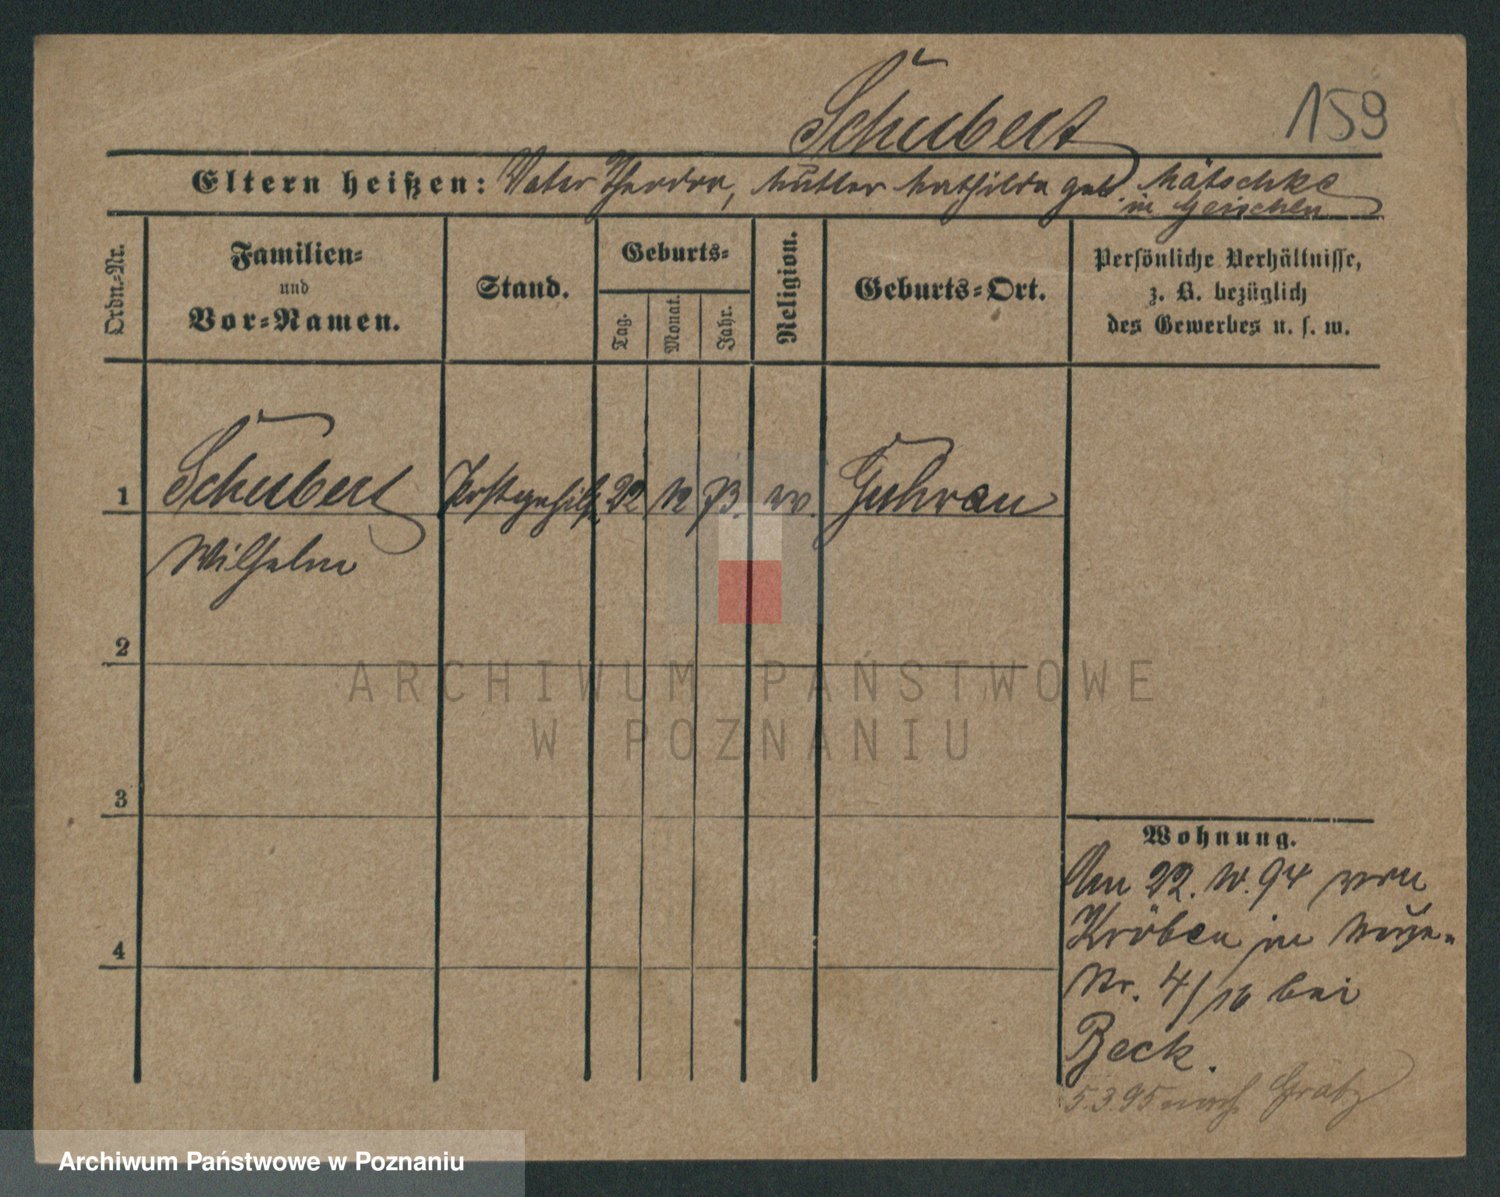 Schubert
159
Eltern heißen: Vater Theodor, Mutter Mathilde geb. Mätschke
in Geischen
Ordn.-Nr.
Familien-
und
Vor-Namen.
Stand.
Geburts-
Tag.
Monat.
Jahr.
Religion.
Geburts-Ort.
Persönliche Verhältnisse,
z. B. bezüglich
des Gewerbes u. s. w.
1 Schubert Postgehilfe 22 12 73. ev. Guhrau
Wilhelm
2
3
4
Wohnung.
Am 22. 10. 94 von
Kröben in
Nr. 4/16 bei
Beck.
5.3.95 nach Grätz
ARCHIWUM PAŃSTWOWE
W POZNANIU
Archiwum Państwowe w Poznaniu